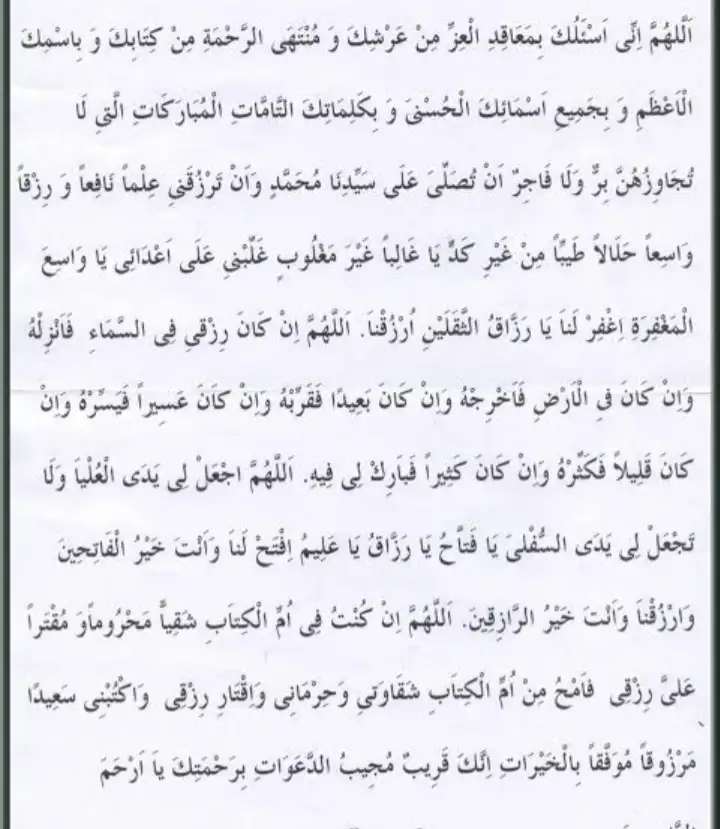 اَللّٰهُمَّ اِنِّى اَسْئَلُكَ بِمَعَاقِدِ الْعِزِّ مِنْ عَرْشِكَ وَ مُنْتَهَى الرَّحْمَةِ مِنْ كِتَابِكَ وَ بِاسْمِكَ
الْاَعْظَمِ وَ بِجَمِيعِ اَسْمَائِكَ الْحُسْنىَ وَ بِكَلِمَاتِكَ التَّامَّاتِ الْمُبَارَكَاتِ الَّتىِ لَا
تُجَاوِزُهُنَّ بِرٌّ وَلَا فَاجِرٌ اَنْ تُصَلِّىَ عَلَى سَيِّدِنَا مُحَمَّدٍ وَاَنْ تَرْزُقَنىِ عِلْماً نَافِعاً وَ رِزْقاً
وَاسِعاً حَلَالاً طَيِّباً مِنْ غَيْرِ كَدٍّ يَا غَالِباً غَيْرَ مَغْلُوبٍ غَلِّبْنىِ عَلَى اَعْدَائِى يَا وَاسِعَ
الْمَغْفِرَةِ اِغْفِرْ لَناَ يَا رَزَّاقُ الثَّقَلَيْنِ اُرْزُقْناَ. اَللّٰهُمَّ اِنْ كَانَ رِزْقىِ فِى السَّمَاءِ فَاَنْزِلْهُ
وَاِنْ كَانَ فىِ الْاَرْضِ فَاَخْرِجْهُ وَاِنْ كَانَ بَعِيدًا فَقَرِّبْهُ وَاِنْ كاَنَ عَسِيراً فَيَسِّرْهُ وَاِنْ
كَانَ قَلِيلاً فَكَثِّرْهُ وَاِنْ كَانَ كَثِيراً فَبَارِكْ لىِ فِيهِ. اَللّٰهُمَّ اجْعَلْ لىِ يَدَى الْعُلْياَ وَلَا
تَجْعَلْ لىِ يَدَى السُّفْلىَ يَا فَتَّاحُ يَا رَزَّاقُ يَا عَلِيمُ اِفْتَحْ لَناَ وَاَنْتَ خَيْرُ الْفَاتِحِينَ
وَارْزُقْناَ وَاَنْتَ خَيْرُ الرَّازِقِينَ. اَللّٰهُمَّ اِنْ كُنْتُ فِى اُمِّ الْكِتاَبِ شَقِياًّ مَحْرُوماًوَ مُقْتَراً
عَلىَّ رِزْقىِ فاَمْحُ مِنْ اُمِّ الْكِتاَبِ شَقَاوَتىِ وَحِرْمَانىِ وَاِقْتَارِ رِزْقىِ وَاكْتُبْنىِ سَعِيدًا
مَرْزُوقاً مُوَفَّقاً بِالْخَيْرَاتِ اِنَّكَ قَرِيبٌ مُجِيبُ الدَّعَوَاتِ بِرَحْمَتِكَ ياَ اَرْحَمَ